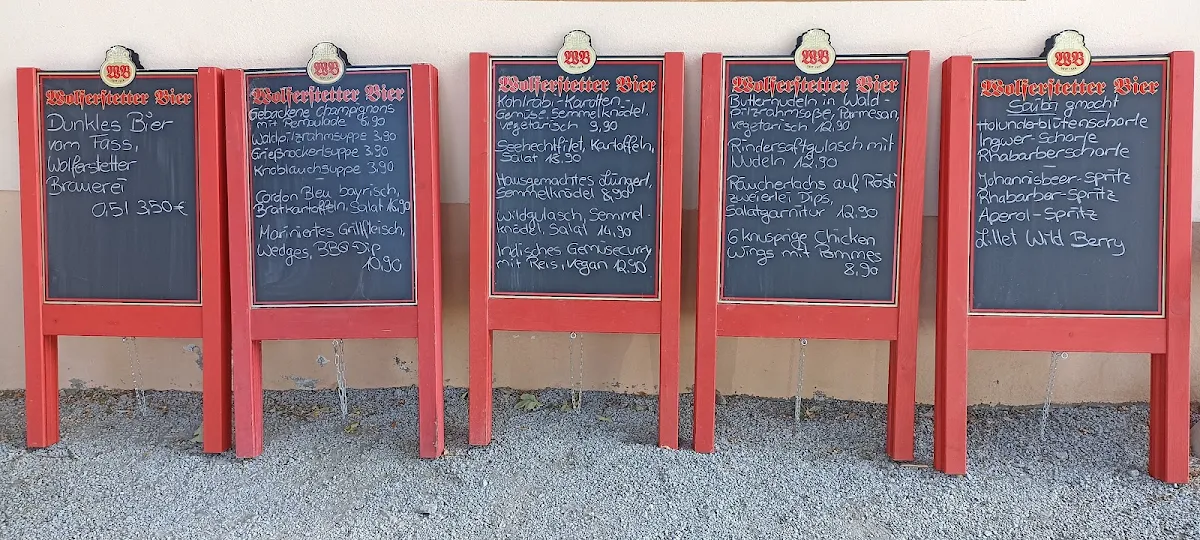 WB
Wolferstetter Bier
Dunkles Bier
vom Fass,
Wolferstetter
Brauerei
0,5l 3,50€
WB
Wolferstetter Bier
Gebackene Champignons
mit Remoulade 8,90
Waldpilzrahmsuppe 3,90
Grießnockerlsuppe 3,90
Knoblauchsuppe 3,90
Cordon Bleu bayrisch,
Bratkartoffeln, Salat 16,90
Mariniertes Grillfleisch,
Wedges, BBQ Dip
10,90
WB
Wolferstetter Bier
Kohlrabi-Karotten-
Gemüse, Semmelknödel,
vegetarisch 9,90
Seehechtfilet, Kartoffeln,
Salat 13,90
Hausgemachtes Lüngerl,
Semmelknödel 8,90
Wildgulasch, Semmel-
knödel, Salat 14,90
Indisches Gemüsecurry
mit Reis, vegan 12,90
WB
Wolferstetter Bier
Butternudeln in Wald-
pilzrahmsoße, Parmesan,
vegetarisch 12,90
Rindersaftgulasch mit
Nudeln 12,90
Räucherlachs auf Rösti
zweierlei Dips,
Salatgarnitur 12,90
6 knusprige Chicken
Wings mit Pommes
8,90
WB
Wolferstetter Bier
Saiba gmocht
Holunderblütenschorle
Ingwer-Schorle
Rhabarberschorle
Johannisbeer-Spritz
Rhabarber-Spritz
Aperol-Spritz
Lillet Wild Berry